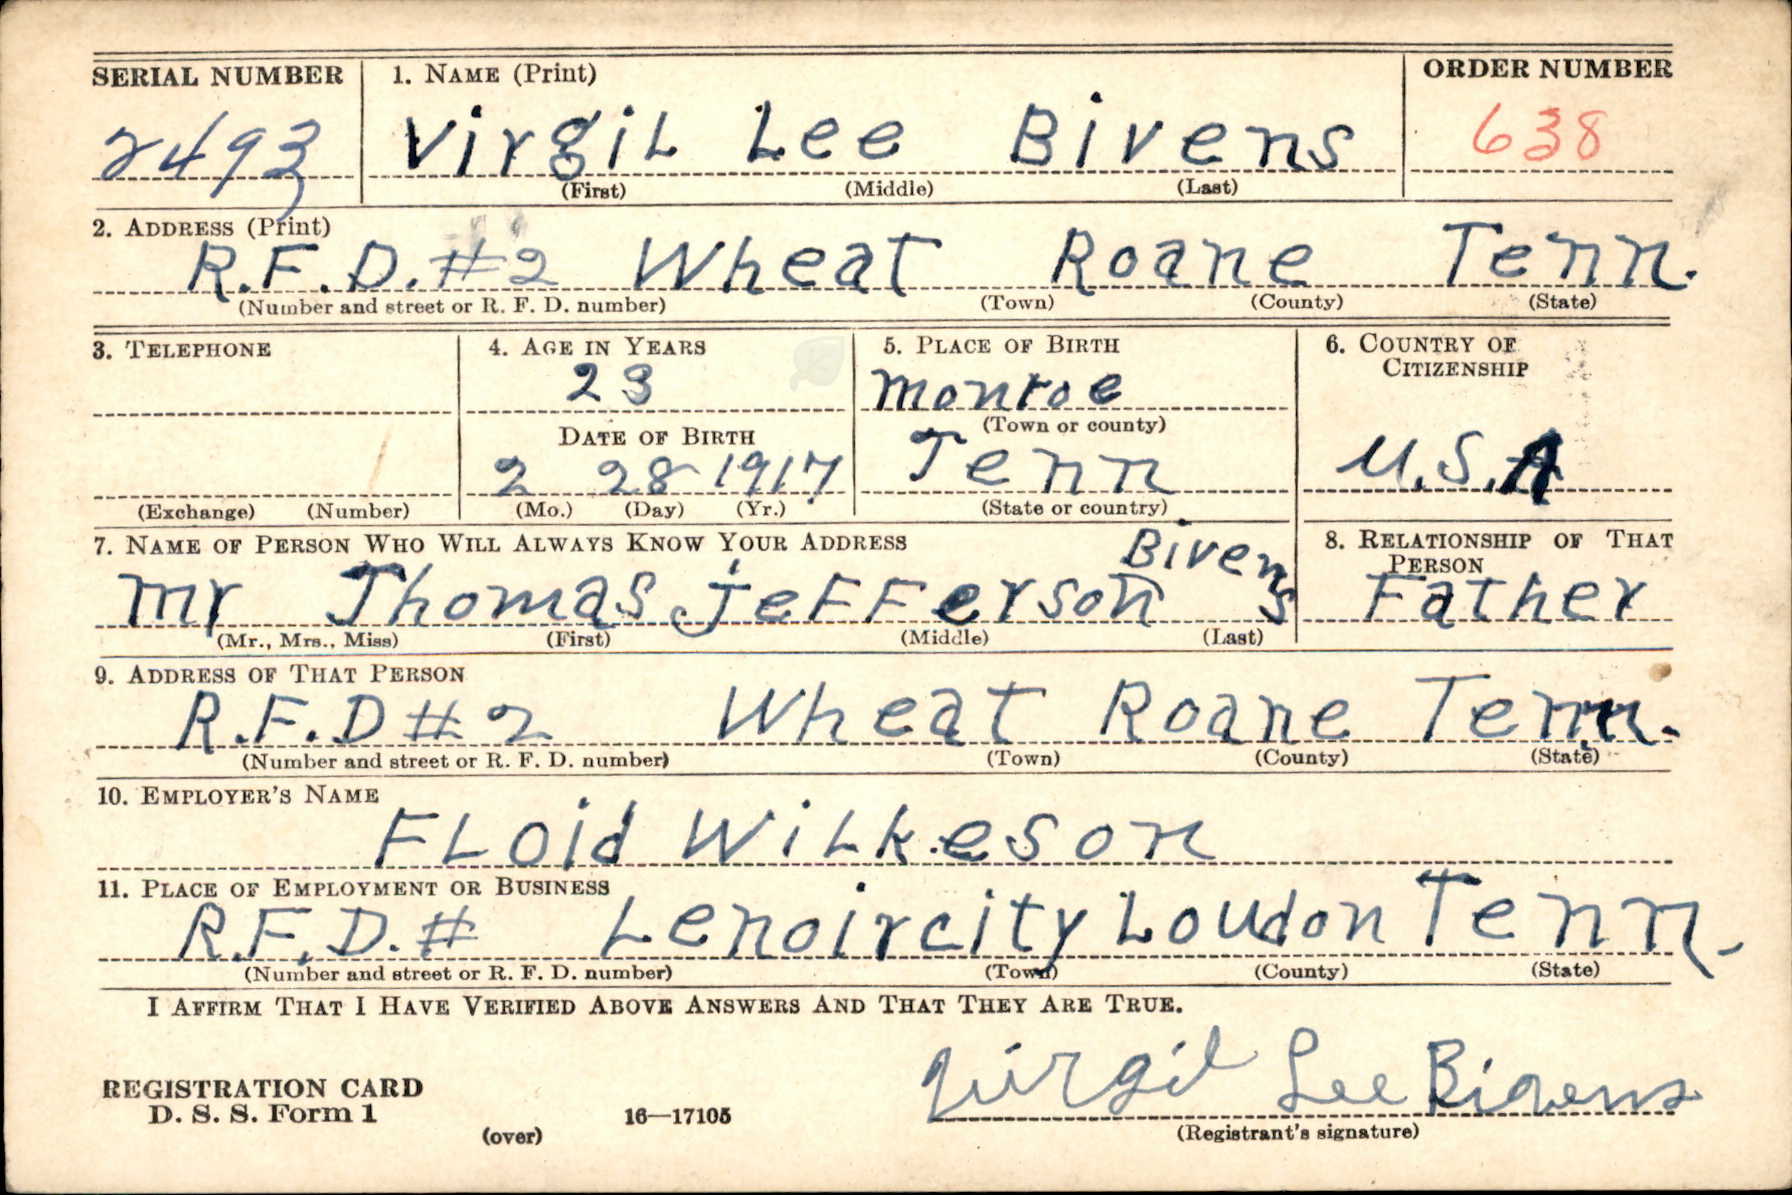 SERIAL NUMBER 1. NAME (Print) ORDER NUMBER
2493 Virgil Lee Bivens 638
(First) (Middle) (Last)
2. ADDRESS (Print)
R.F.D.#2 Wheat Roane Tenn.
(Number and street or R. F. D. number) (Town) (County) (State)
3. TELEPHONE 4. AGE IN YEARS 5. PLACE OF BIRTH 6. COUNTRY OF
CITIZENSHIP
23 Monroe
(Town or county)
DATE OF BIRTH
2 28 1917 Tenn U.S.A
(Exchange) (Number) (Mo.) (Day) (Yr.) (State or country)
7. NAME OF PERSON WHO WILL ALWAYS KNOW YOUR ADDRESS 8. RELATIONSHIP OF THAT
PERSON
Mr Thomas Jefferson Bivens Father
(Mr., Mrs., Miss) (First) (Middle) (Last)
9. ADDRESS OF THAT PERSON
R.F.D#2 Wheat Roane Tenn.
(Number and street or R. F. D. number) (Town) (County) (State)
10. EMPLOYER'S NAME
FLoid WiLkeson
11. PLACE OF EMPLOYMENT OR BUSINESS
R.F.D.# Lenoircity Loudon Tenn.
(Number and street or R. F. D. number) (Town) (County) (State)
I AFFIRM THAT I HAVE VERIFIED ABOVE ANSWERS AND THAT THEY ARE TRUE.
Virgil Lee Bivens
REGISTRATION CARD
D. S. S. Form 1 16—17105
(over) (Registrant's signature)